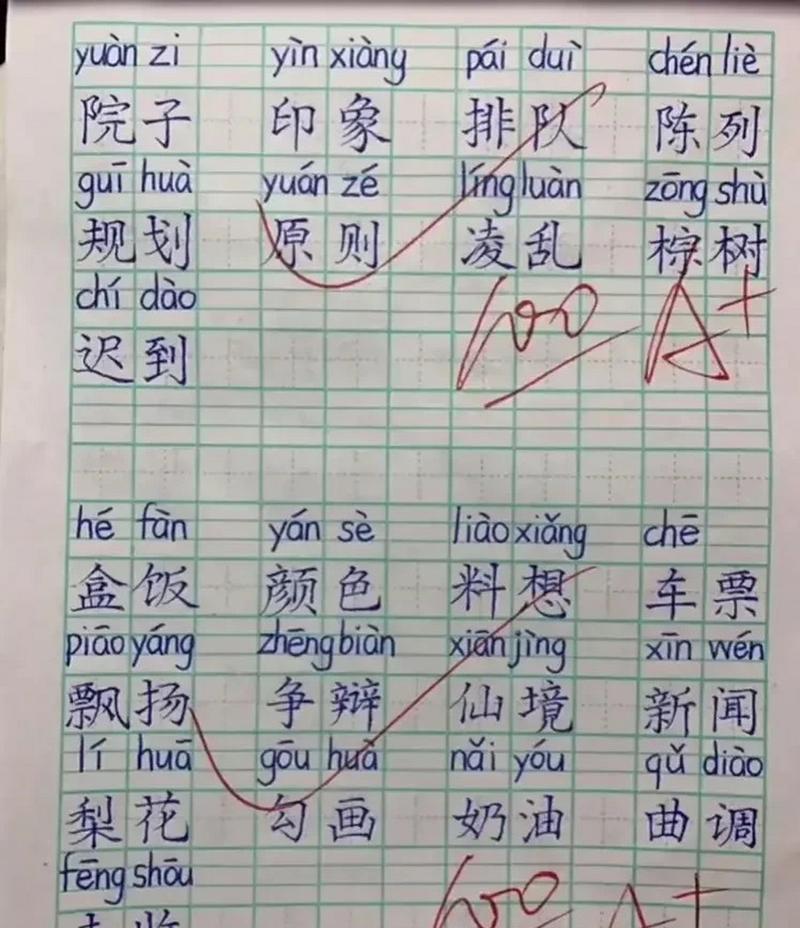 yuàn zi yìn xiàng pái duì chén liè
院子 印象 排队 陈列
guī huà yuán zé líng luàn zōng shù
规划 原则 凌乱 棕树
chí dào
迟到
100 A+
hé fàn yán sè liào xiǎng chē
盒饭 颜色 料想 车票
piāo yáng zhēng biàn xiān jìng xīn wén
飘扬 争辩 仙境 新闻
lí huā gōu huà nǎi yóu qǔ diào
梨花 勾画 奶油 曲调
fēng shōu
100 A+